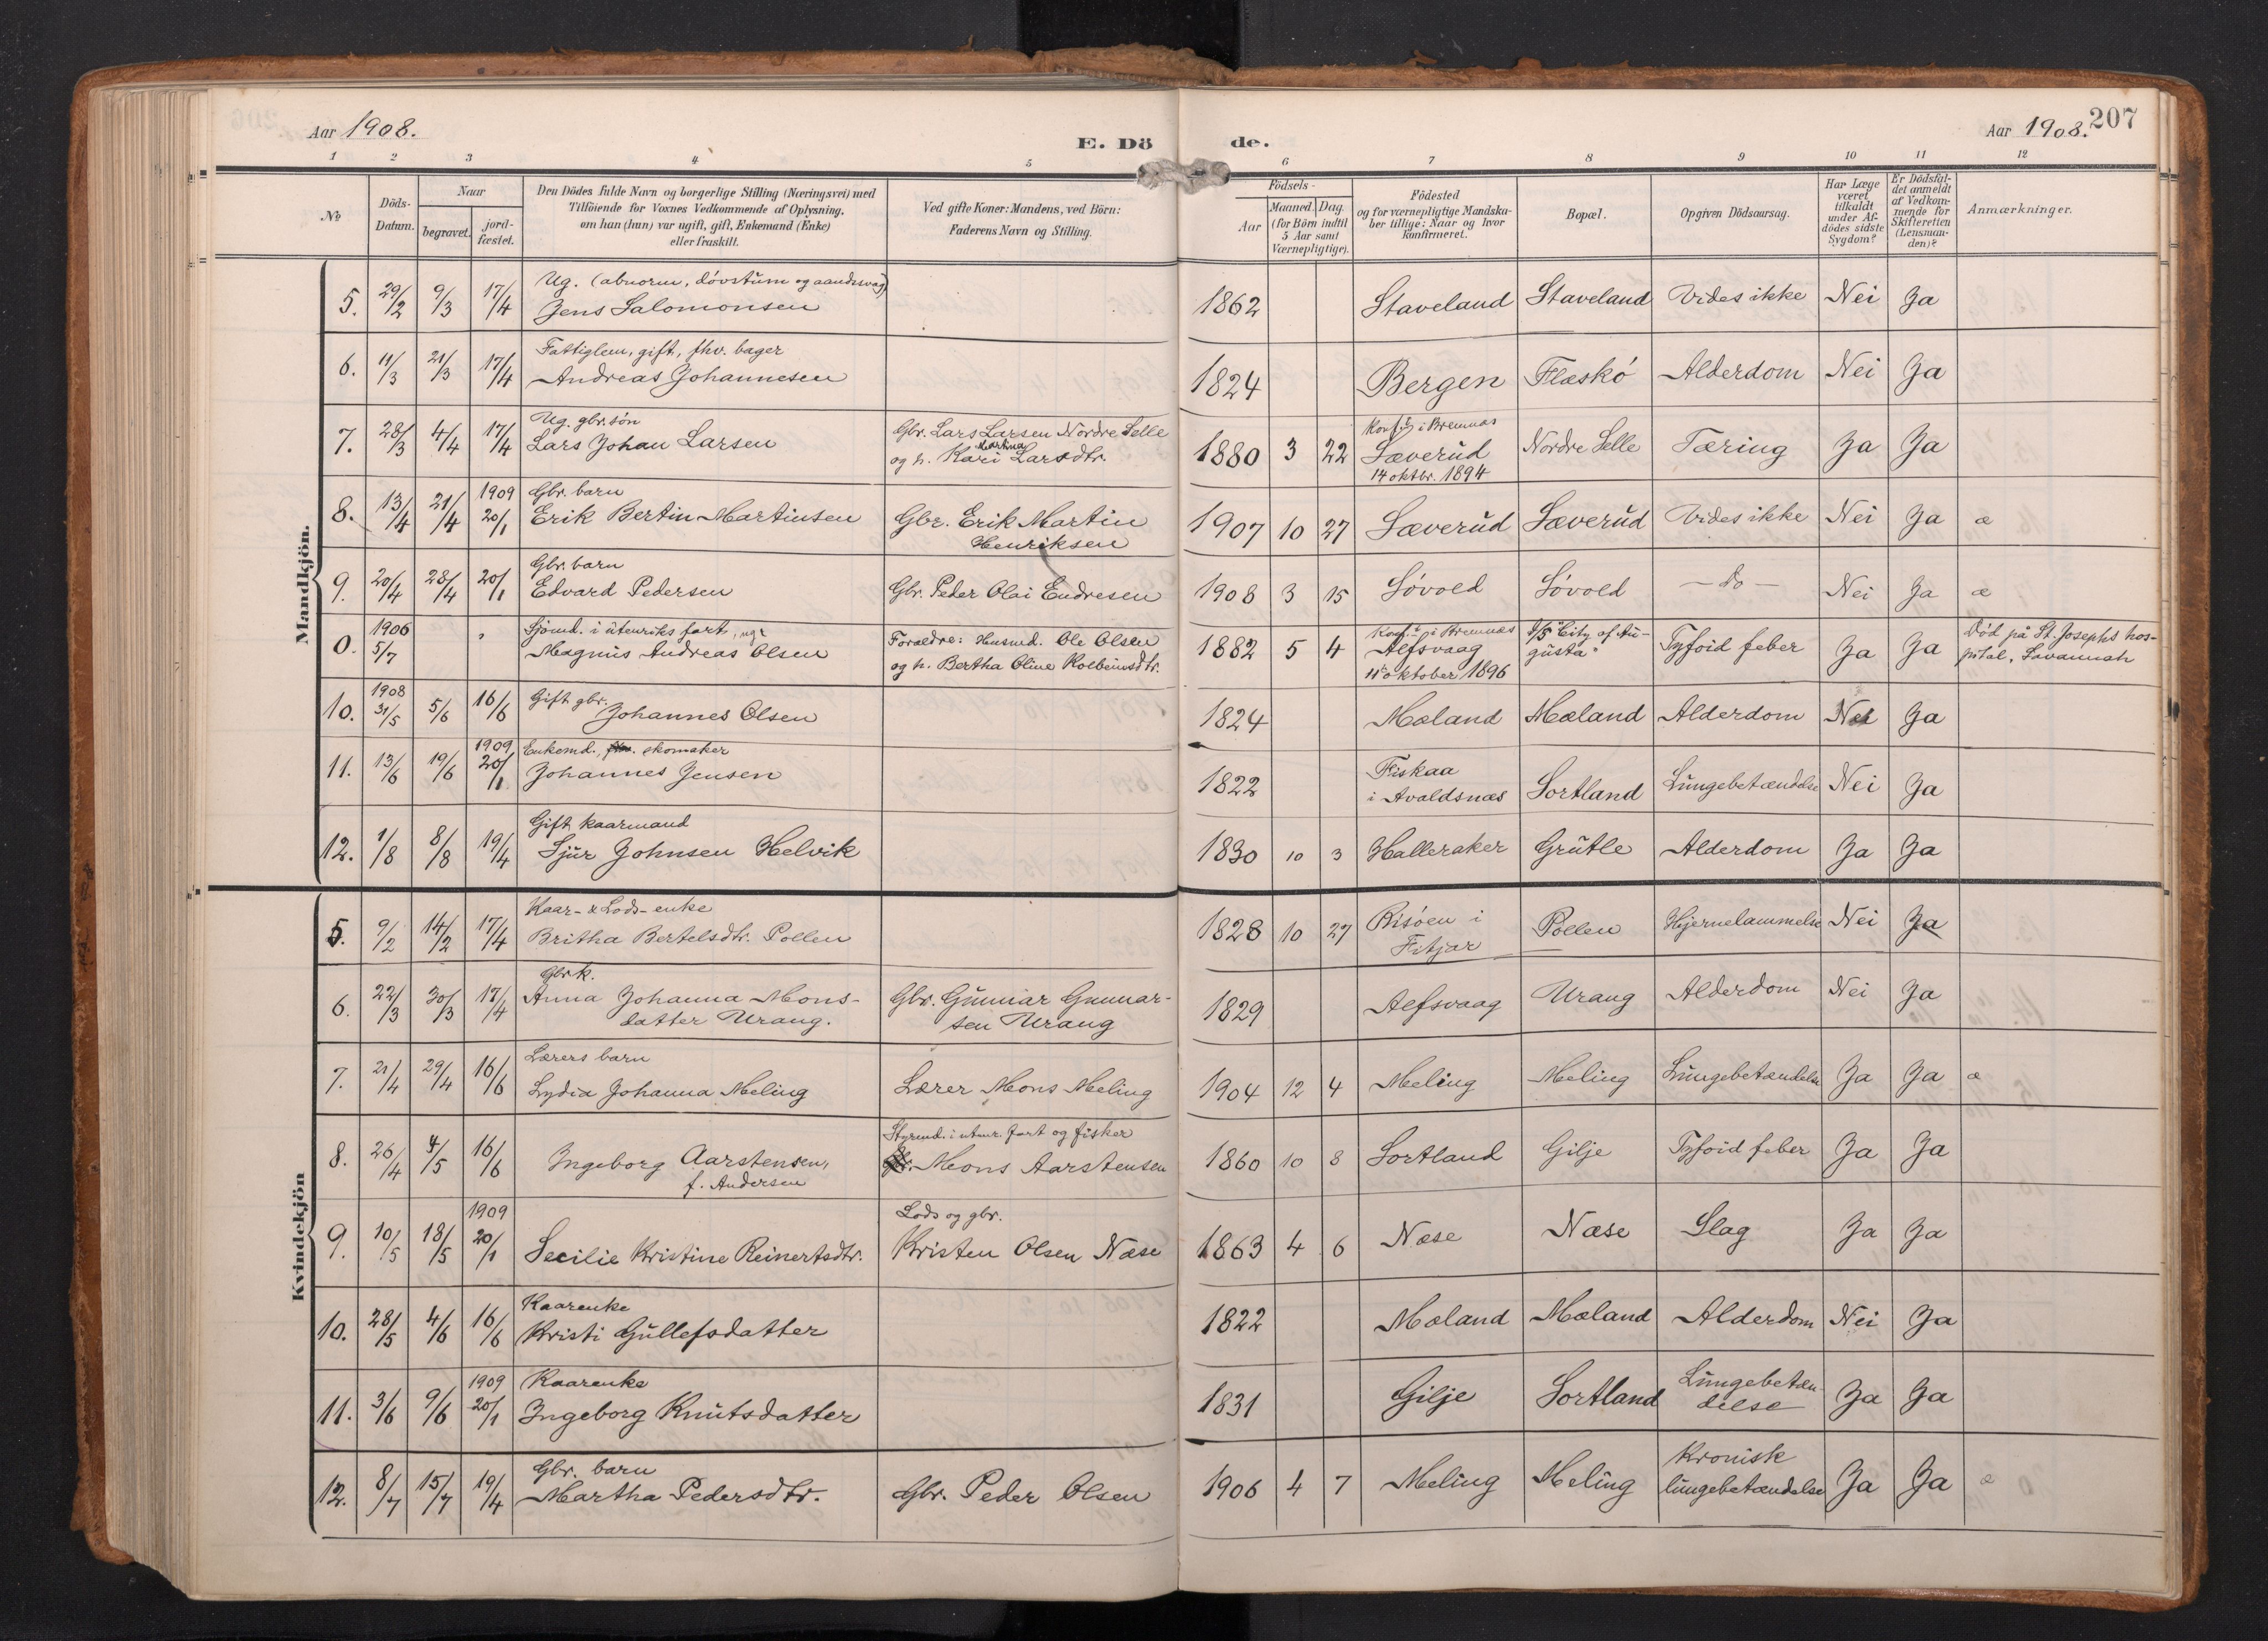 Aar 1908.
E. Dö
de.
Aar 1908.
207
1 2 3 4 5 6 7 8 9 10 11 12
No
Döds-
Datum.
Naar
begravet.
jord-
fæstet.
Den Dödes fulde Navn og borgerlige Stilling (Næringsvei) med
Tilföiende for Voxnes Vedkommende af Oplysning,
om han (hun) var ugift, gift, Enkemand (Enke)
eller fraskilt.
Ved gifte Koner: Mandens, ved Börn:
Faderens Navn og Stilling.
Födsels-
Aar
Maaned. Dag.
(for Börn indtil
5 Aar samt
Værnepligtige).
Födested
og for værnepligtige Mandska-
ber tillige: Naar og hvor
konfirmeret.
Bopæl.
Opgiven Dödsaarsag.
Har Læge
været
tilkaldt
under Af-
dödes sidste
Sygdom?
Er Dödsfal-
det anmeldt
af Vedkom-
mende for
Skifteretten
(Lensman-
den)?
Anmærkninger.
Mandkjön.
Ug. (abnorm, døvstum og aandssvag)
5. 29/2 9/3 17/4 Jens Salomonsen 1862 Staveland Staveland Vides ikke Nei Ja
Fattiglem, gift, fhv. bager
6. 11/3 21/3 17/4 Andreas Johannesen 1824 Bergen Flæskø Alderdom Nei Ja
Ug. gbr. søn Gbr. Lars Larsen Nordre Selle Konf. i Bremnæs
7. 28/3 4/4 17/4 Lars Johan Larsen og h. Kari Martina Larsdtr. 1880 3 22 Sæverud Nordre Selle Tæring Ja Ja
14 oktbr. 1894
1909 Gbr. barn
8. 13/4 21/4 20/1 Erik Bertin Martinsen Gbr. Erik Martin 1907 10 27 Sæverud Sæverud Vides ikke Nei Ja æ
Henriksen
Gbr. barn
9. 20/4 28/4 20/1 Edvard Pedersen Gbr. Peder Olai Endresen 1908 3 15 Løvold Løvold — do — Nei Ja æ
1906 Sjømd. i utenriks fart, ug. Forældre: Husmd. Ole Olsen Konf. i Bremnæs D/S "City of Au- Død på St. Josephs hos-
0. 5/7 Magnus Andreas Olsen og h. Bertha Oline Kolbeinsdtr. 1882 5 4 Alfsvaag gusta" Tyfoid feber Ja Ja pital, Savannah
11 oktober 1896
1908 Gift gbr.
10. 31/5 5/6 16/6 Johannes Olsen 1824 Mæland Mæland Alderdom Nei Ja
1909 Enkemd., skomaker Fiskaa
11. 13/6 19/6 20/1 Johannes Jensen 1822 i Avaldsnæs Sortland Lungebetændelse Nei Ja
Gift kaarmand
12. 1/8 8/8 19/4 Sjur Johnsen Helvik 1830 10 3 Halleraker Grutle Alderdom Ja Ja
Kvindekjön
Kaar- & Lods- enke
5. 9/2 14/2 17/4 Britha Bertelsdtr. Pollen 1828 10 27 Risøen i Pollen Hjernelammelse Nei Ja
Fitjar
Gbrk.
6. 22/3 30/3 17/4 Anna Johanna Mons- Gbr. Gunnar Gunnar- 1829 Alfsvaag Urang Alderdom Nei Ja
datter Urang. sen Urang
Lærers barn
7. 21/4 29/4 16/6 Lydia Johanna Meling Lærer Mons Meling 1904 12 4 Meling Meling Lungebetændelse Ja Ja æ
Styrmd. i utenr. fart og fisker
8. 26/4 4/5 16/6 Ingeborg Aarstensen, Mons Aarstensen 1860 10 8 Sortland Gilje Tyfoid feber Ja Ja
f. Andersen
1909 Lods og gbr.
9. 10/5 18/5 20/1 Secilie Kristine Reinertsdtr. Kristen Olsen Næse 1863 4 6 Næse Næse Slag Ja Ja
Kaarenke
10. 28/5 4/6 16/6 Kristi Gullefsdatter 1822 Mæland Mæland Alderdom Nei Ja
1909 Kaarenke Lungebetæn-
11. 3/6 9/6 20/1 Ingeborg Knutsdatter 1831 Gilje Sortland delse Ja Ja
Gbr. barn Kronisk
12. 8/7 15/7 19/4 Martha Pedersdtr. Gbr. Peder Olsen 1906 4 7 Meling Meling lungebetændelse Ja Ja æ